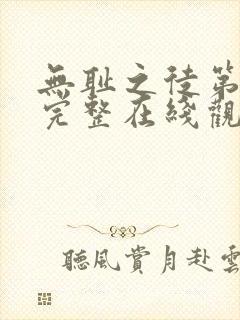 無耻之徒第
完整在綫觀
聽風賞月赴雲